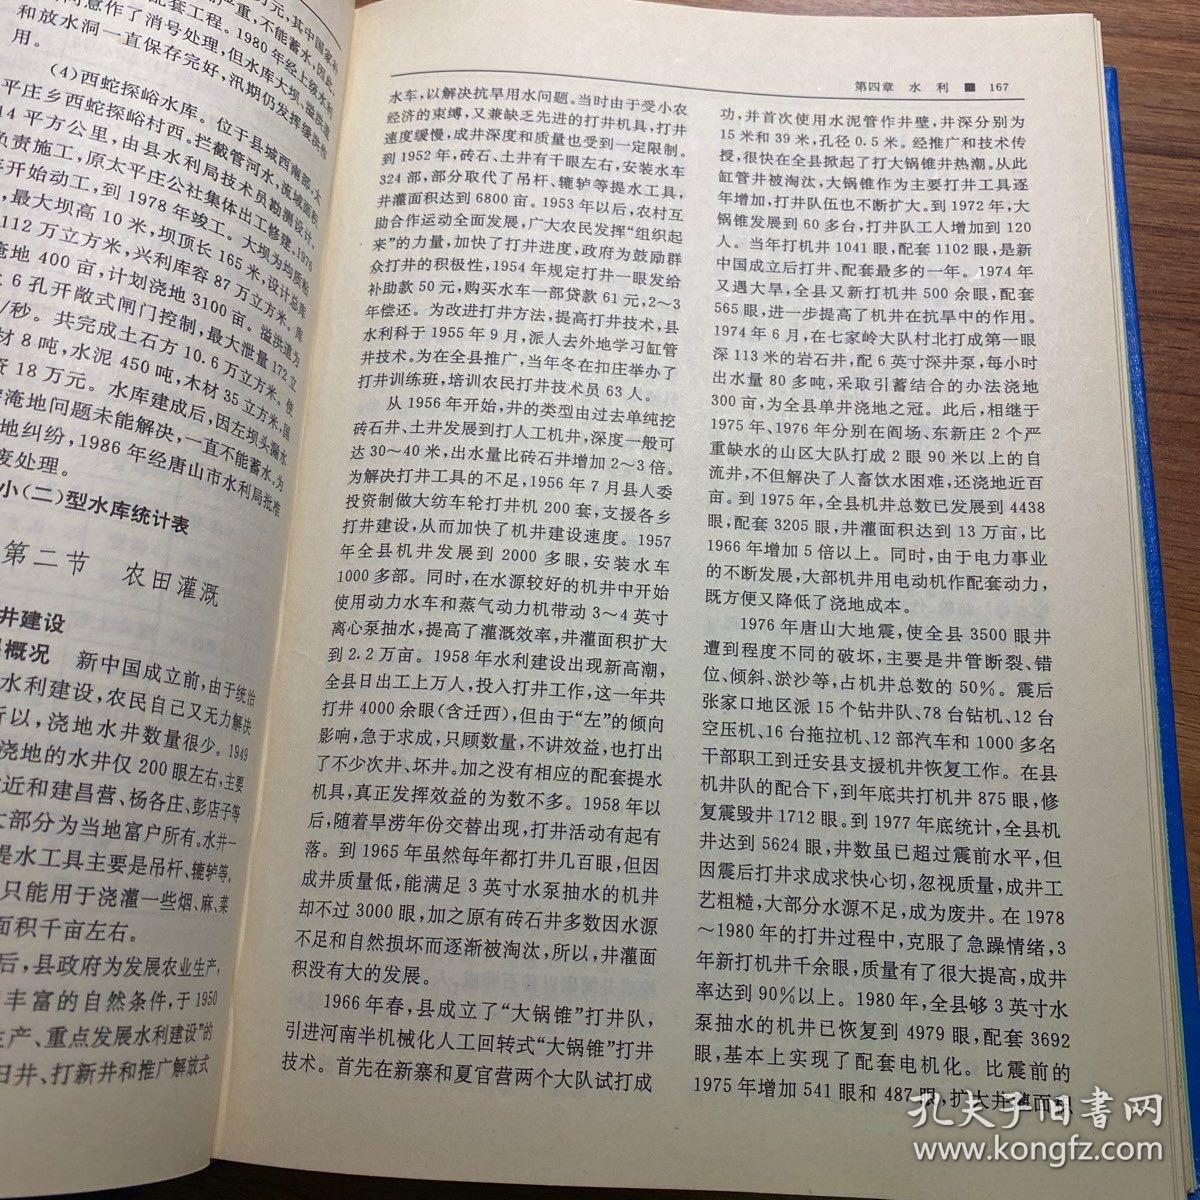 和放水洞一直保存完好,汛期仍发挥缓洪作
用。
(4)西蛇探峪水库。位于县城西南部,太
平庄乡西蛇探峪村西。拦截管河水,流域面积
14平方公里,由县水利局技术员勘测设计,
负责施工,原太平庄公社集体出工修建。1976
年开始动工,到1978年竣工。大坝为均质粘
,最大坝高10米,坝顶长165米,设计总库
112万立方米,兴利库容87万立方米。库
淹地400亩,计划浇地3100亩。溢洪道为
6孔开敞式闸门控制,最大泄量172立
/秒。共完成土石方10.6万立方米。使
材8吨,水泥450吨,木材35立方米,国
资18万元。水库建成后,因左坝头漏水
淹地问题未能解决,一直不能蓄水。为
地纠纷,1986年经唐山市水利局批准
废处理。
小(二)型水库统计表
第二节 农田灌溉
井建设
概况 新中国成立前,由于统治
水利建设,农民自己又无力解决
所以,浇地水井数量很少。1949
浇地的水井仅200眼左右,主要
近和建昌营、杨各庄、彭店子等
大部分为当地富户所有。水井一
提水工具主要是吊杆、辘轳等。
只能用于浇灌一些烟、麻、菜
面积千亩左右。
后,县政府为发展农业生产,
丰富的自然条件,于1950
生产、重点发展水利建设”的
旧井、打新井和推广解放式
第四章 水 利 ■ 167
水车,以解决抗旱用水问题。当时由于受小农
经济的束缚,又兼缺乏先进的打井机具,打井
速度缓慢,成井深度和质量也受到一定限制。
到1952年,砖石、土井有千眼左右,安装水车
324部,部分取代了吊杆、辘轳等提水工具,
井灌面积达到6800亩。1953年以后,农村互
助合作运动全面发展,广大农民发挥“组织起
来”的力量,加快了打井进度,政府为鼓励群
众打井的积极性,1954年规定打井一眼发给
补助款50元,购买水车一部贷款61元,2~3
年偿还。为改进打井方法,提高打井技术,县
水利科于1955年9月,派人去外地学习缸管
井技术。为在全县推广,当年冬在扣庄举办了
打井训练班,培训农民打井技术员63人。
从1956年开始,井的类型由过去单纯挖
砖石井、土井发展到打人工机井,深度一般可
达30~40米,出水量比砖石井增加2~3倍。
为解决打井工具的不足,1956年7月县人委
投资制做大纺车轮打井机200套,支援各乡
打井建设,从而加快了机井建设速度。1957
年全县机井发展到2000多眼,安装水车
1000多部。同时,在水源较好的机井中开始
使用动力水车和蒸气动力机带动3~4英寸
离心泵抽水,提高了灌溉效率,井灌面积扩大
到2.2万亩。1958年水利建设出现新高潮,
全县日出工上万人,投入打井工作,这一年共
打井4000余眼(含迁西),但由于“左”的倾向
影响,急于求成,只顾数量,不讲效益,也打出
了不少次井、坏井。加之没有相应的配套提水
机具,真正发挥效益的为数不多。1958年以
后,随着旱涝年份交替出现,打井活动有起有
落。到1965年虽然每年都打井几百眼,但因
成井质量低,能满足3英寸水泵抽水的机井
却不过3000眼,加之原有砖石井多数因水源
不足和自然损坏而逐渐被淘汰,所以,井灌面
积没有大的发展。
1966年春,县成立了“大锅锥”打井队,
引进河南半机械化人工回转式“大锅锥”打井
技术。首先在新寨和夏官营两个大队试打成
功,并首次使用水泥管作井壁,井深分别为
15米和39米,孔径0.5米。经推广和技术传
授,很快在全县掀起了打大锅锥井热潮。从此
缸管井被淘汰,大锅锥作为主要打井工具逐
年增加,打井队伍也不断扩大。到1972年,大
锅锥发展到60多台,打井队工人增加到120
人。当年打机井1041眼,配套1102眼,是新
中国成立后打井、配套最多的一年。1974年
又遇大旱,全县又新打机井500余眼,配套
565眼,进一步提高了机井在抗旱中的作用。
1974年6月,在七家岭大队村北打成第一眼
深113米的岩石井,配6英寸深井泵,每小时
出水量80多吨,采取引蓄结合的办法浇地
300亩,为全县单井浇地之冠。此后,相继于
1975年、1976年分别在阎场、东新庄2个严
重缺水的山区大队打成2眼90米以上的自
流井,不但解决了人畜饮水困难,还浇地近百
亩。到1975年,全县机井总数已发展到4438
眼,配套3205眼,井灌面积达到13万亩,比
1966年增加5倍以上。同时,由于电力事业
的不断发展,大部机井用电动机作配套动力,
既方便又降低了浇地成本。
1976年唐山大地震,使全县3500眼井
遭到程度不同的破坏,主要是井管断裂、错
位、倾斜、淤沙等,占机井总数的50%。震后
张家口地区派15个钻井队、78台钻机、12台
空压机、16台拖拉机、12部汽车和1000多名
干部职工到迁安县支援机井恢复工作。在县
机井队的配合下,到年底共打机井875眼,修
复震毁井1712眼。到1977年底统计,全县机
井达到5624眼,井数虽已超过震前水平,但
因震后打井求成求快心切,忽视质量,成井工
艺粗糙,大部分水源不足,成为废井。在1978
~1980年的打井过程中,克服了急躁情绪,3
年新打机井千余眼,质量有了很大提高,成井
率达到90%以上。1980年,全县够3英寸水
泵抽水的机井已恢复到4979眼,配套3692
眼,基本上实现了配套电机化。比震前的
1975年增加541眼和487眼,扩大井灌面积
孔夫子旧书网
www.kongfz.com